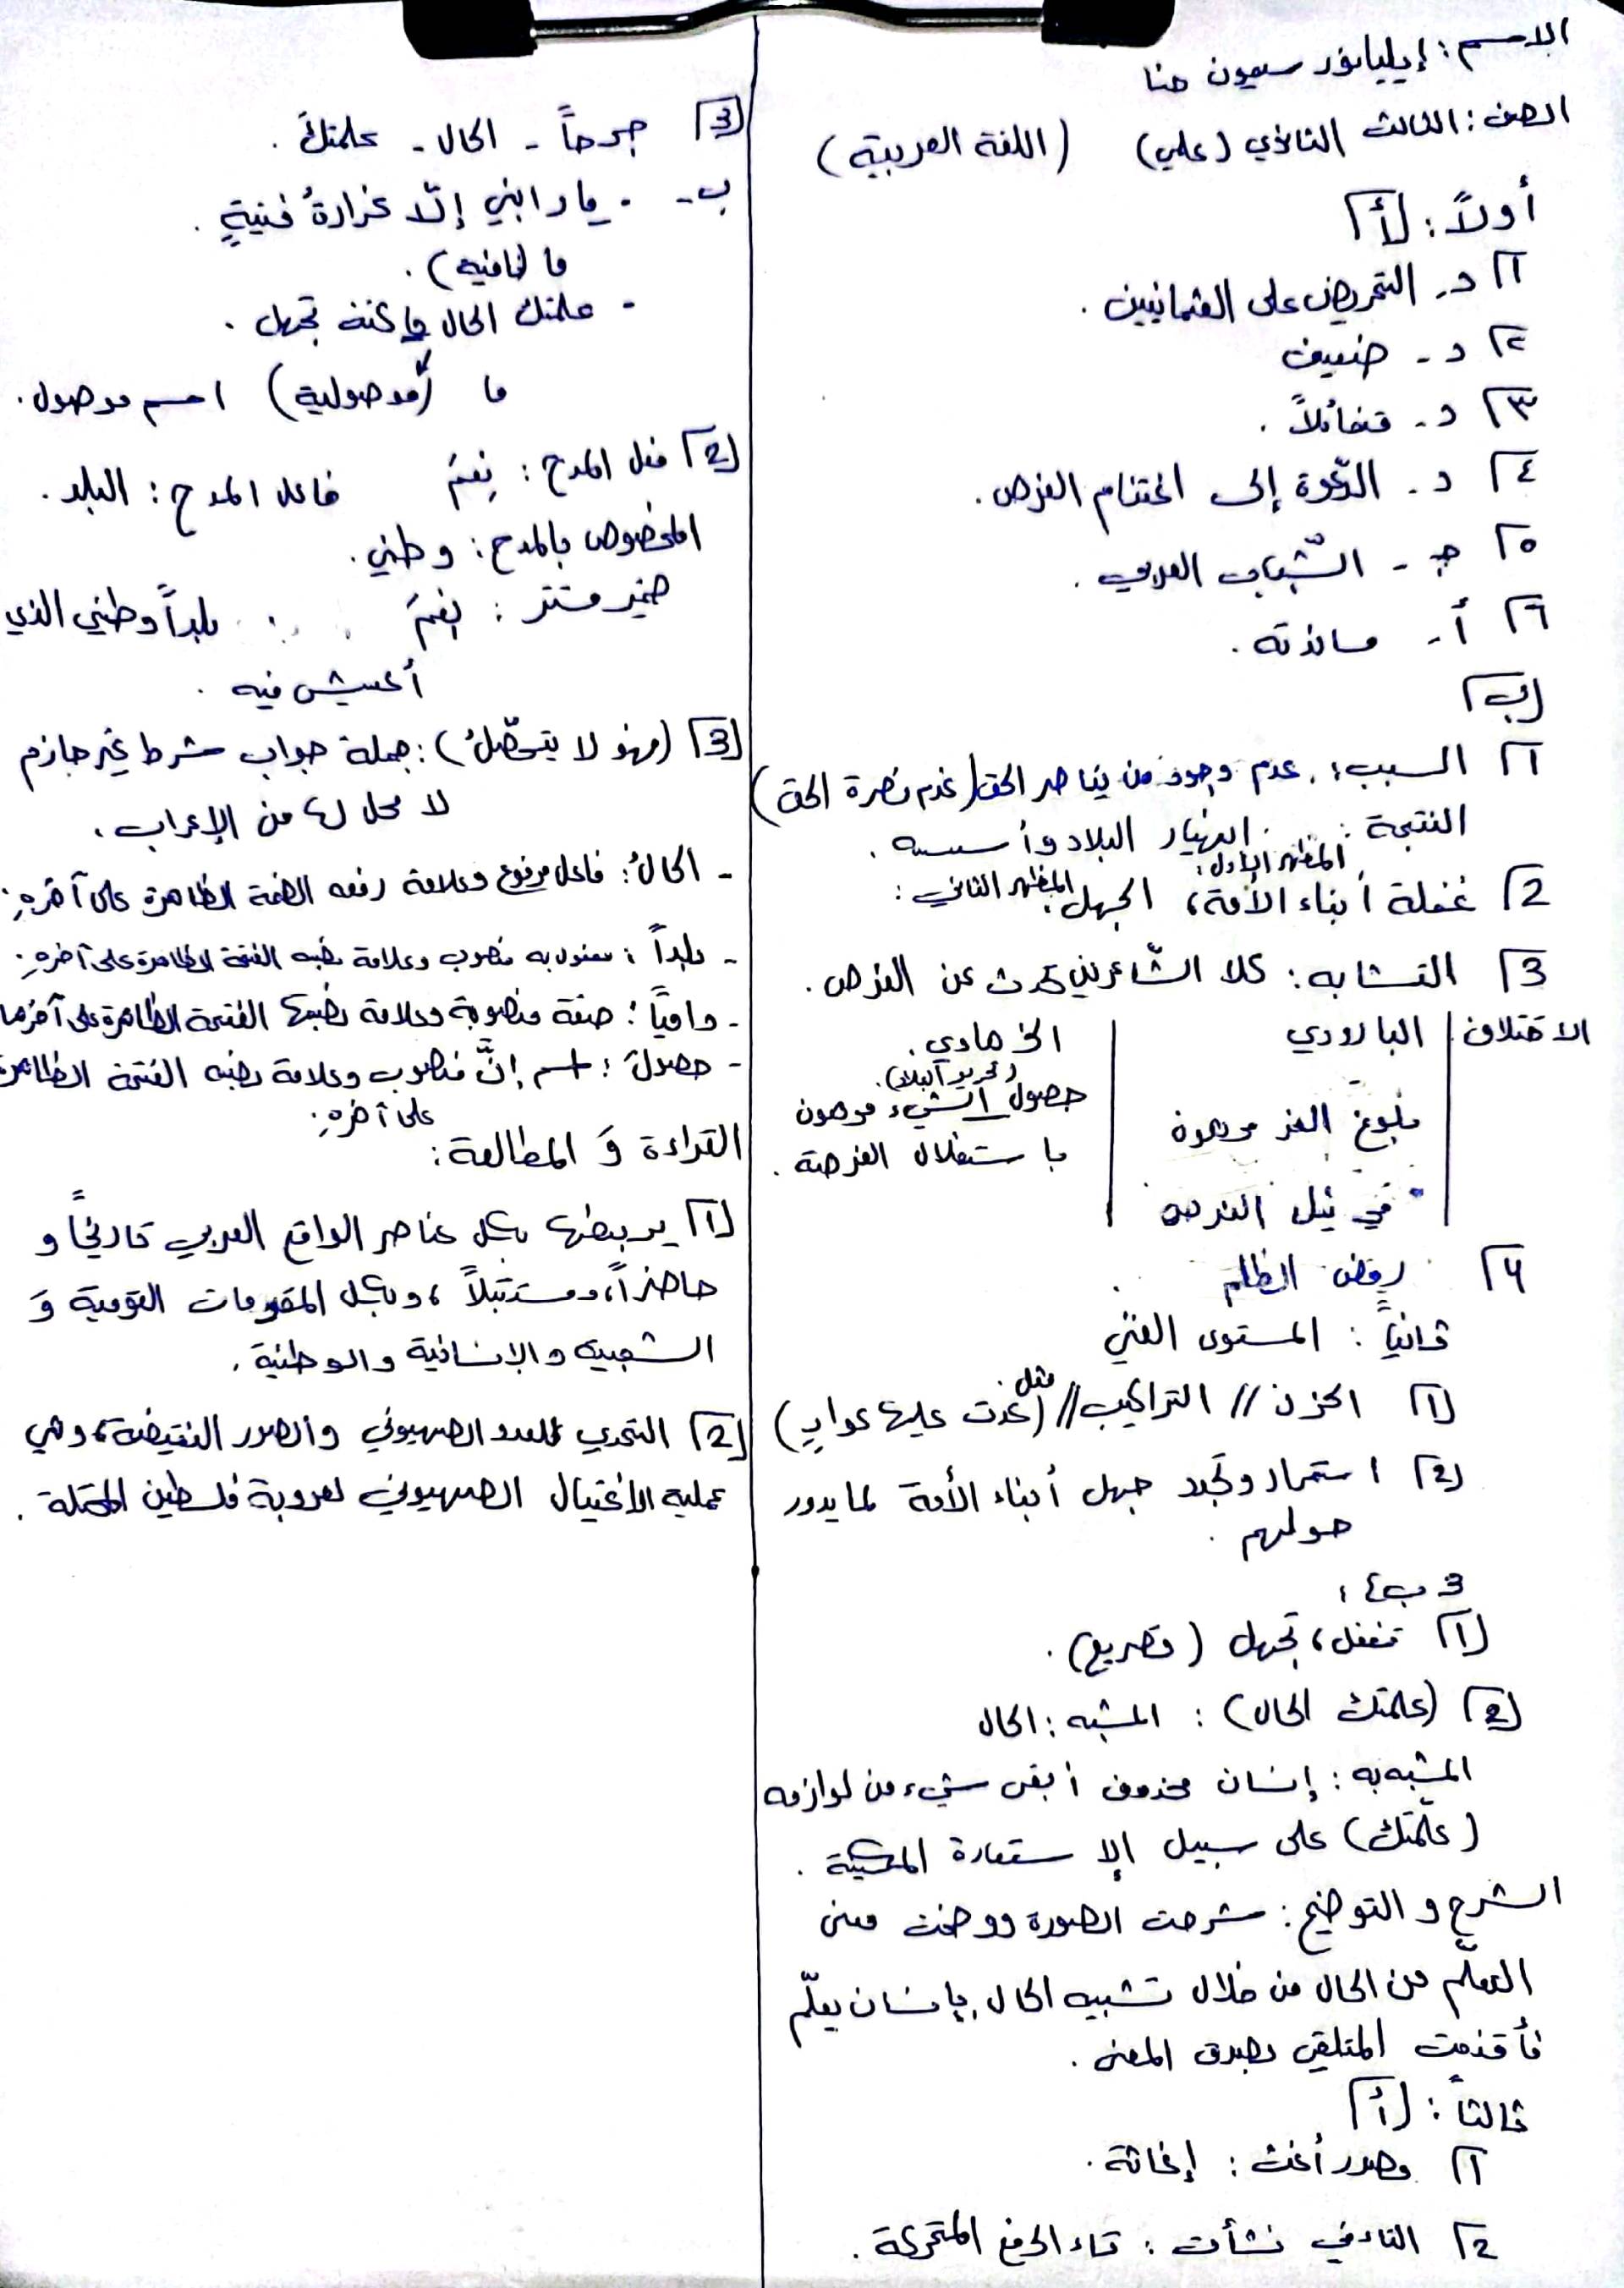 الاسم: إيليانور سيمون حنا
الصف: الثالث الثانوي (علمي) (اللغة العربية)
أولاً: أ
١ د. التحريض على العثمانيين.
٢ د. ضعيف
٣ د. تفاؤلاً.
٤ د. الدّعوة إلى اغتنام الفرص.
٥ ج - الشّباب العربي.
٦ أ. مساندته.
ب
١ السبب: عدم وجود من يناصر الحق (عدم نصرة الحق)
النتيجة: انهيار البلاد وأسسه.
2 المظهر الأول: غفلة أبناء الأمة، المظهر الثاني: الجهل.
3 التشابه: كلا الشّاعرين تحدث عن الفرص.
الاختلاف: البارودي
بلوغ العز مرهون
في نيل الفرص
(تحرير البلاد).
حصول الشيء مرهون
باستغلال الفرصة.
4 رفض الظلم
ثانياً: المستوى الفني
1 الحزن // التراكيب // مثل (عدت عليها عوادٍ)
2 استمرار وتجدد جهل أبناء الأمة لما يدور
حولهم.
3 ب:
1 تغفل، تجهل (تصريع).
2 (علمتك الحال): المشبه: الحال
المشبه به: إنسان محذوف أبقى شيء من لوازمه
(علّمتك) على سبيل الإستعارة المكنية.
الشرح والتوضيح: شرحت الصورة ووضحت معنى
التعلّم من الحال من خلال تشبيه الحال بإنسان يعلّم
فأقنعت المتلقي بصدق المعنى.
ثالثاً: أ
1 مصدر أغث: إغاثة.
2 التاء في نشأت: تاء الرفع المتحركة.
3 جرحاً - الحال - علمتكَ.
ب - . ما رابني إلّا غرارةُ فتيةٍ.
ما (نافية).
- علمتك الحال ما كنت تجهل.
ما (موصولية) اسم موصول.
2 فعل المدح: نِعْمَ فاعل المدح: البلد.
المخصوص بالمدح: وطني.
ضمير مستتر: نِعْمَ بلداً وطني الذي
أعيش فيه.
3 (فهو لا يتحصّلُ): جملة جواب شرط غير جازم
لا محل لها من الإعراب.
- الحالُ: فاعل مرفوع وعلامة رفعه الضمة الظاهرة على آخرهِ.
- بلداً: مفعول به منصوب وعلامة نصبه الفتحة الظاهرة على آخرهِ.
- دامياً: صفة منصوبة وعلامة نصبها الفتحة الظاهرة على آخرها
- حصولَ: اسم إنَّ منصوب وعلامة نصبه الفتحة الظاهرة
على آخرهِ.
القراءة وَ المطالعة:
1 يربطها بكل عناصر الواقع العربي تاريخاً و
حاضراً، ومستقبلاً، وبكل المقومات القومية وَ
الشعبية والإنسانية والوطنية.
2 التحدي للعدو الصهيوني والصور النقيضة، وهي
عملية الاغتيال الصهيوني لعروبة فلسطين المحتلة.